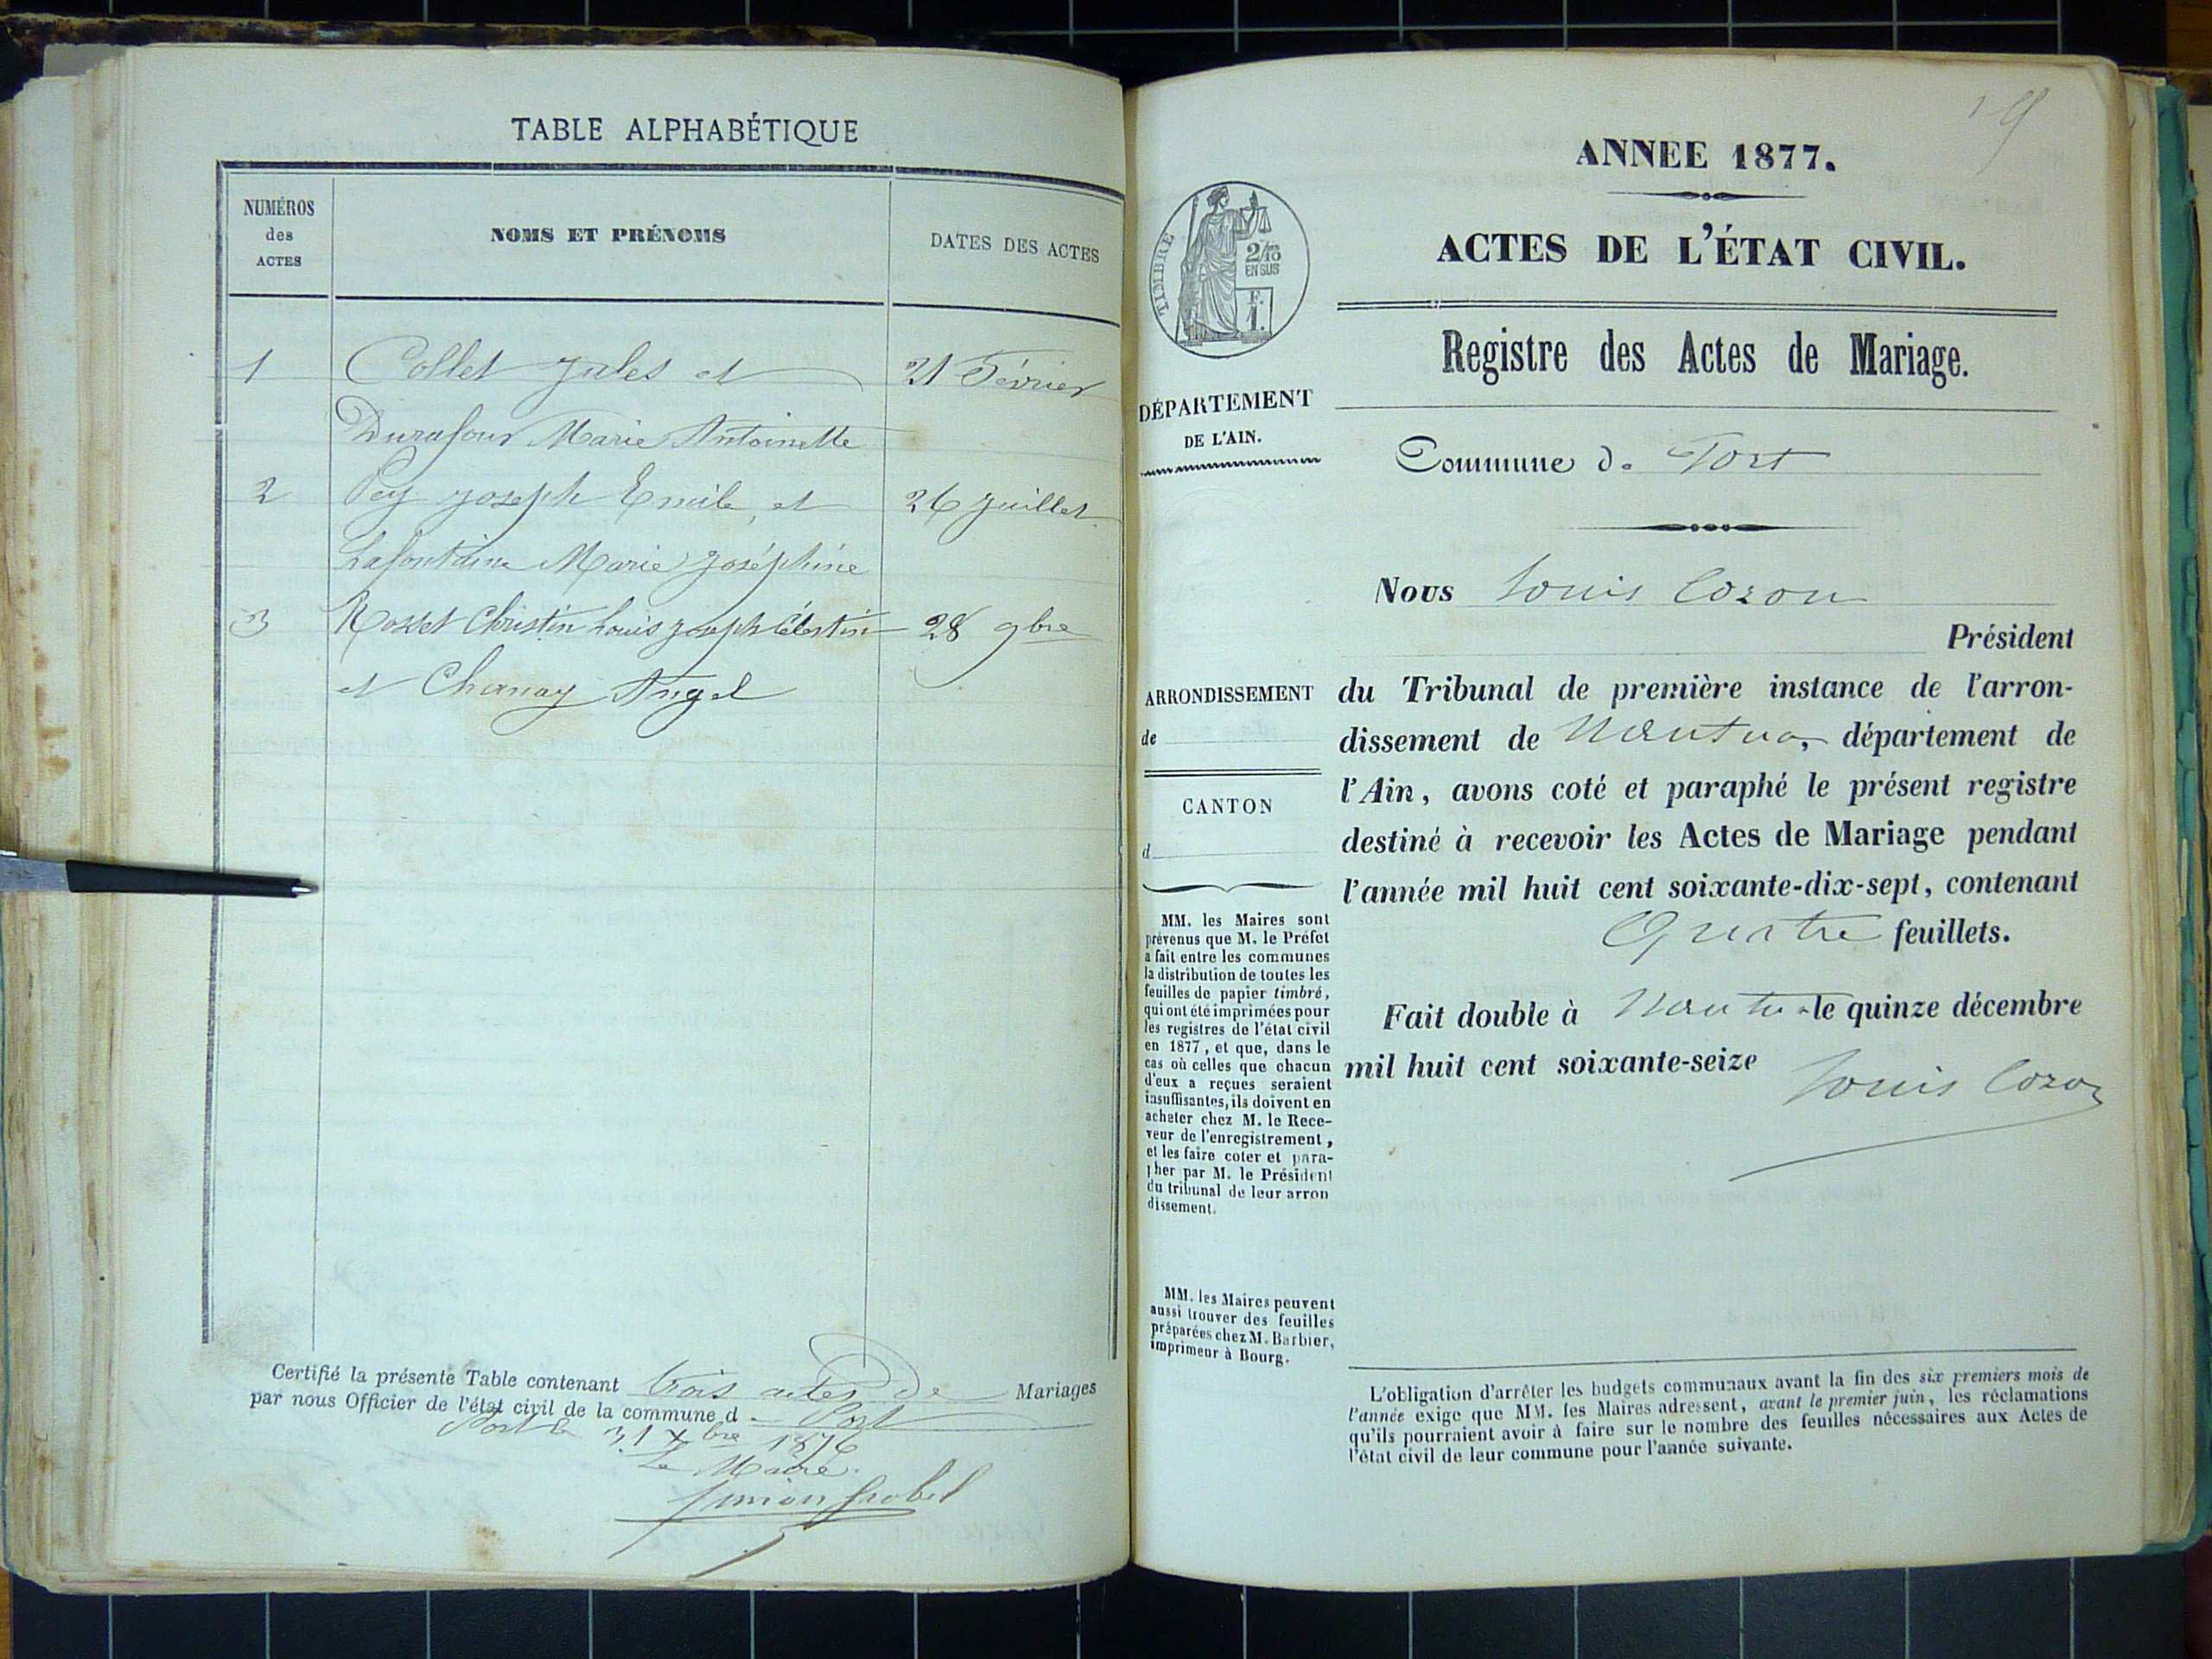 TABLE ALPHABÉTIQUE
NUMÉROS
des
ACTES
NOMS ET PRÉNOMS
DATES DES ACTES
1 Collet Jules et 21 Février
Durafour Marie Antoinette
2 Pey Joseph Emile, et 26 Juillet
Lafontaine Marie Joséphine
3 Rosset Christin Louis Joseph Célestin 28 9bre
et Chanay Angel
Certifié la présente Table contenant trois actes de Mariages
par nous Officier de l'état civil de la commune d Port
Port le 31 Xbre 1876
Le Maire
19
ANNEE 1877.
ACTES DE L'ÉTAT CIVIL.
Registre des Actes de Mariage.
TIMBRE
2/10
EN SUS
F.
1.
DÉPARTEMENT
DE L'AIN.
Commune de Port
Nous Louis Cozon
Président
du Tribunal de première instance de l'arron-
dissement de Nantua, département de
l'Ain, avons coté et paraphé le présent registre
destiné à recevoir les Actes de Mariage pendant
l'année mil huit cent soixante-dix-sept, contenant
Quatre feuillets.
Fait double à Nantua le quinze décembre
mil huit cent soixante-seize
Louis Cozon
ARRONDISSEMENT
de
CANTON
d
MM. les Maires sont
prévenus que M. le Préfet
a fait entre les communes
la distribution de toutes les
feuilles de papier timbré,
qui ont été imprimées pour
les registres de l'état civil
en 1877, et que, dans le
cas où celles que chacun
d'eux a reçues seraient
insuffisantes, ils doivent en
acheter chez M. le Rece-
veur de l'enregistrement,
et les faire coter et para-
pher par M. le Président
du tribunal de leur arron
dissement.
MM. les Maires peuvent
aussi trouver des feuilles
préparées chez M. Barbier,
imprimeur à Bourg.
L'obligation d'arrêter les budgets communaux avant la fin des six premiers mois de
l'année exige que MM. les Maires adressent, avant le premier juin, les réclamations
qu'ils pourraient avoir à faire sur le nombre des feuilles nécessaires aux Actes de
l'état civil de leur commune pour l'année suivante.